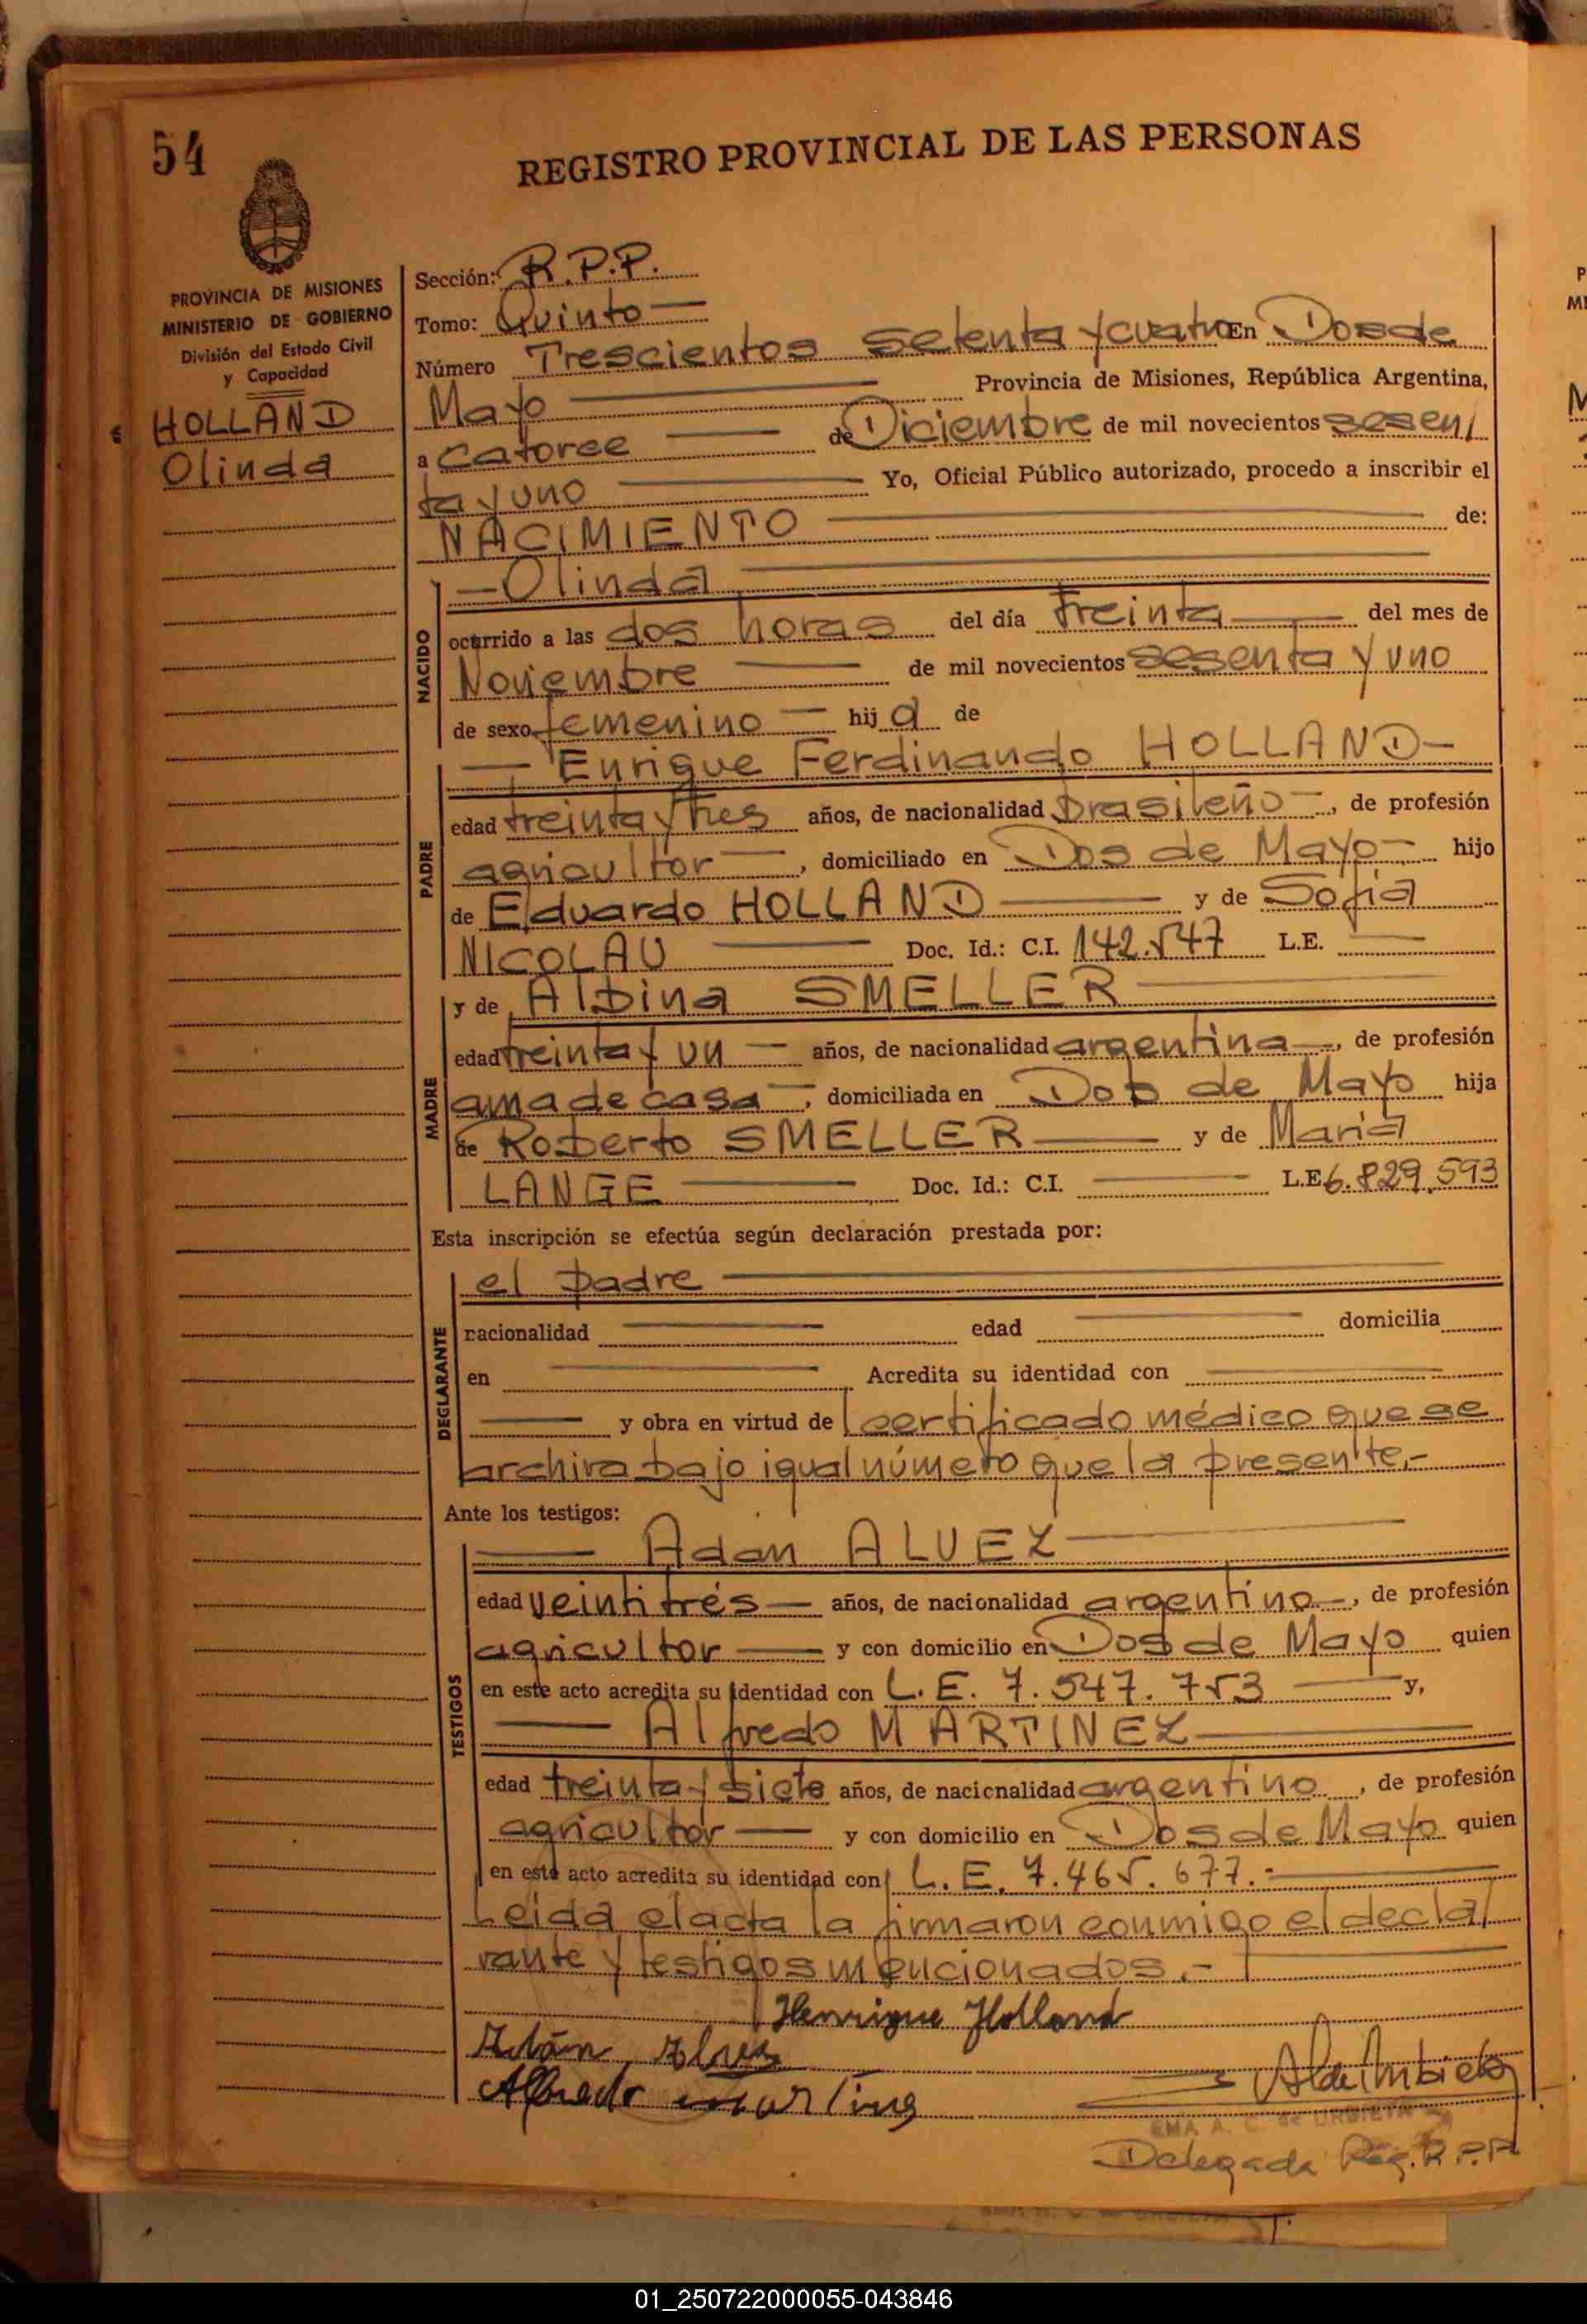 54
REGISTRO PROVINCIAL DE LAS PERSONAS
PROVINCIA DE MISIONES
MINISTERIO DE GOBIERNO
División del Estado Civil
y Capacidad
HOLLAND
Olinda
Sección: R.P.P.
Tomo: Quinto
Número Trescientos setenta y cuatro En Dos de
Mayo Provincia de Misiones, República Argentina,
a catorce de Diciembre de mil novecientos sesen/
ta y uno Yo, Oficial Público autorizado, procedo a inscribir el
NACIMIENTO de:
NACIDO
—Olinda
ocurrido a las dos horas del día treinta del mes de
Noviembre de mil novecientos sesenta y uno
de sexo femenino hija de
PADRE
— Enrique Ferdinando HOLLAND—
edad treinta y tres años, de nacionalidad brasileño, de profesión
agricultor, domiciliado en Dos de Mayo hijo
de Eduardo HOLLAND y de Sofia
NICOLAU Doc. Id.: C.I. 142.547 L.E.
MADRE
y de Albina SMELLER
edad treinta y un años, de nacionalidad argentina, de profesión
ama de casa, domiciliada en Dos de Mayo hija
de Roberto SMELLER y de Maria
LANGE Doc. Id.: C.I. L.E 6.829.593
Esta inscripción se efectúa según declaración prestada por:
DECLARANTE
el padre
nacionalidad edad domicilia
en Acredita su identidad con
y obra en virtud de certificado médico que se
archiva bajo igual número que la presente.-
Ante los testigos:
TESTIGOS
— Adan ALVEZ
edad veintitrés años, de nacionalidad argentino, de profesión
agricultor y con domicilio en Dos de Mayo quien
en este acto acredita su identidad con L.E. 7.547.753 y,
— Alfredo MARTINEZ
edad treinta y siete años, de nacionalidad argentino, de profesión
agricultor y con domicilio en Dos de Mayo quien
en este acto acredita su identidad con L.E. 7.465.677.-
Leida el acta la firmaron conmigo el decla/
rante y testigos mencionados.-
Henrique Holland
Adán Alves
Alfredo
EMA A. C. de URBIETA
Delegada Reg. R.P.P.
01_250722000055-043846